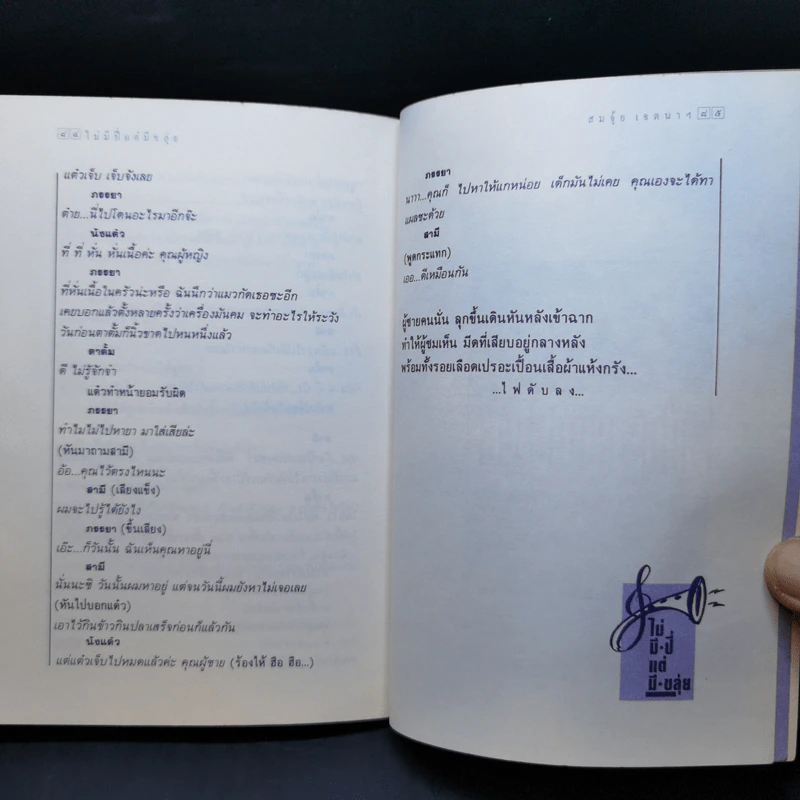 ๘๔ ไม่มีปี่แต่มีขลุ่ย
แต๋วเจ็บ เจ็บจังเลย
ภรรยา
ต๋าย...นี่ไปโดนอะไรมาอีกจ๊ะ
นังแต๋ว
ที่ ที่ หั่น หั่นเนื้อค่ะ คุณผู้หญิง
ภรรยา
ที่หั่นเนื้อในครัวน่ะหรือ ฉันนึกว่าแมวกัดเธอซะอีก
เคยบอกแล้วตั้งหลายครั้งว่าเครื่องมันคม จะทำอะไรให้ระวัง
วันก่อนตาตั้มก็นิ้วขาดไปหนหนึ่งแล้ว
ตาตั้ม
ดี ไม่รู้จักจำ
แต๋วทำหน้ายอมรับผิด
ภรรยา
ทำไมไม่ไปหายา มาใส่เสียล่ะ
(หันมาถามสามี)
อ้อ...คุณไว้ตรงไหนนะ
สามี (เสียงแข็ง)
ผมจะไปรู้ได้ยังไง
ภรรยา (ขึ้นเสียง)
เอ๊ะ...ก็วันนั้น ฉันเห็นคุณหาอยู่นี่
สามี
นั่นนะซิ วันนั้นผมหาอยู่ แต่จนวันนี้ผมยังหาไม่เจอเลย
(หันไปบอกแต๋ว)
เอาไว้กินข้าวกินปลาเสร็จก่อนก็แล้วกัน
นังแต๋ว
แต่แต๋วเจ็บไปหมดแล้วค่ะ คุณผู้ชาย (ร้องไห้ ฮือ ฮือ...)
สมจุ้ย เจตนาฯ ๘๕
ภรรยา
นาาา...คุณก็ ไปหาให้แกหน่อย เด็กมันไม่เคย คุณเองจะได้ทา
แผลซะด้วย
สามี
(พูดกระแทก)
เออ...ดีเหมือนกัน
ผู้ชายคนนั่น ลุกขึ้นเดินหันหลังเข้าฉาก
ทำให้ผู้ชมเห็น มีดที่เสียบอยู่กลางหลัง
พร้อมทั้งรอยเลือดเปรอะเปื้อนเสื้อผ้าแห้งกรัง...
...ไฟดับลง...
ไม่
มี•ปี่
แต่
มี•ขลุ่ย